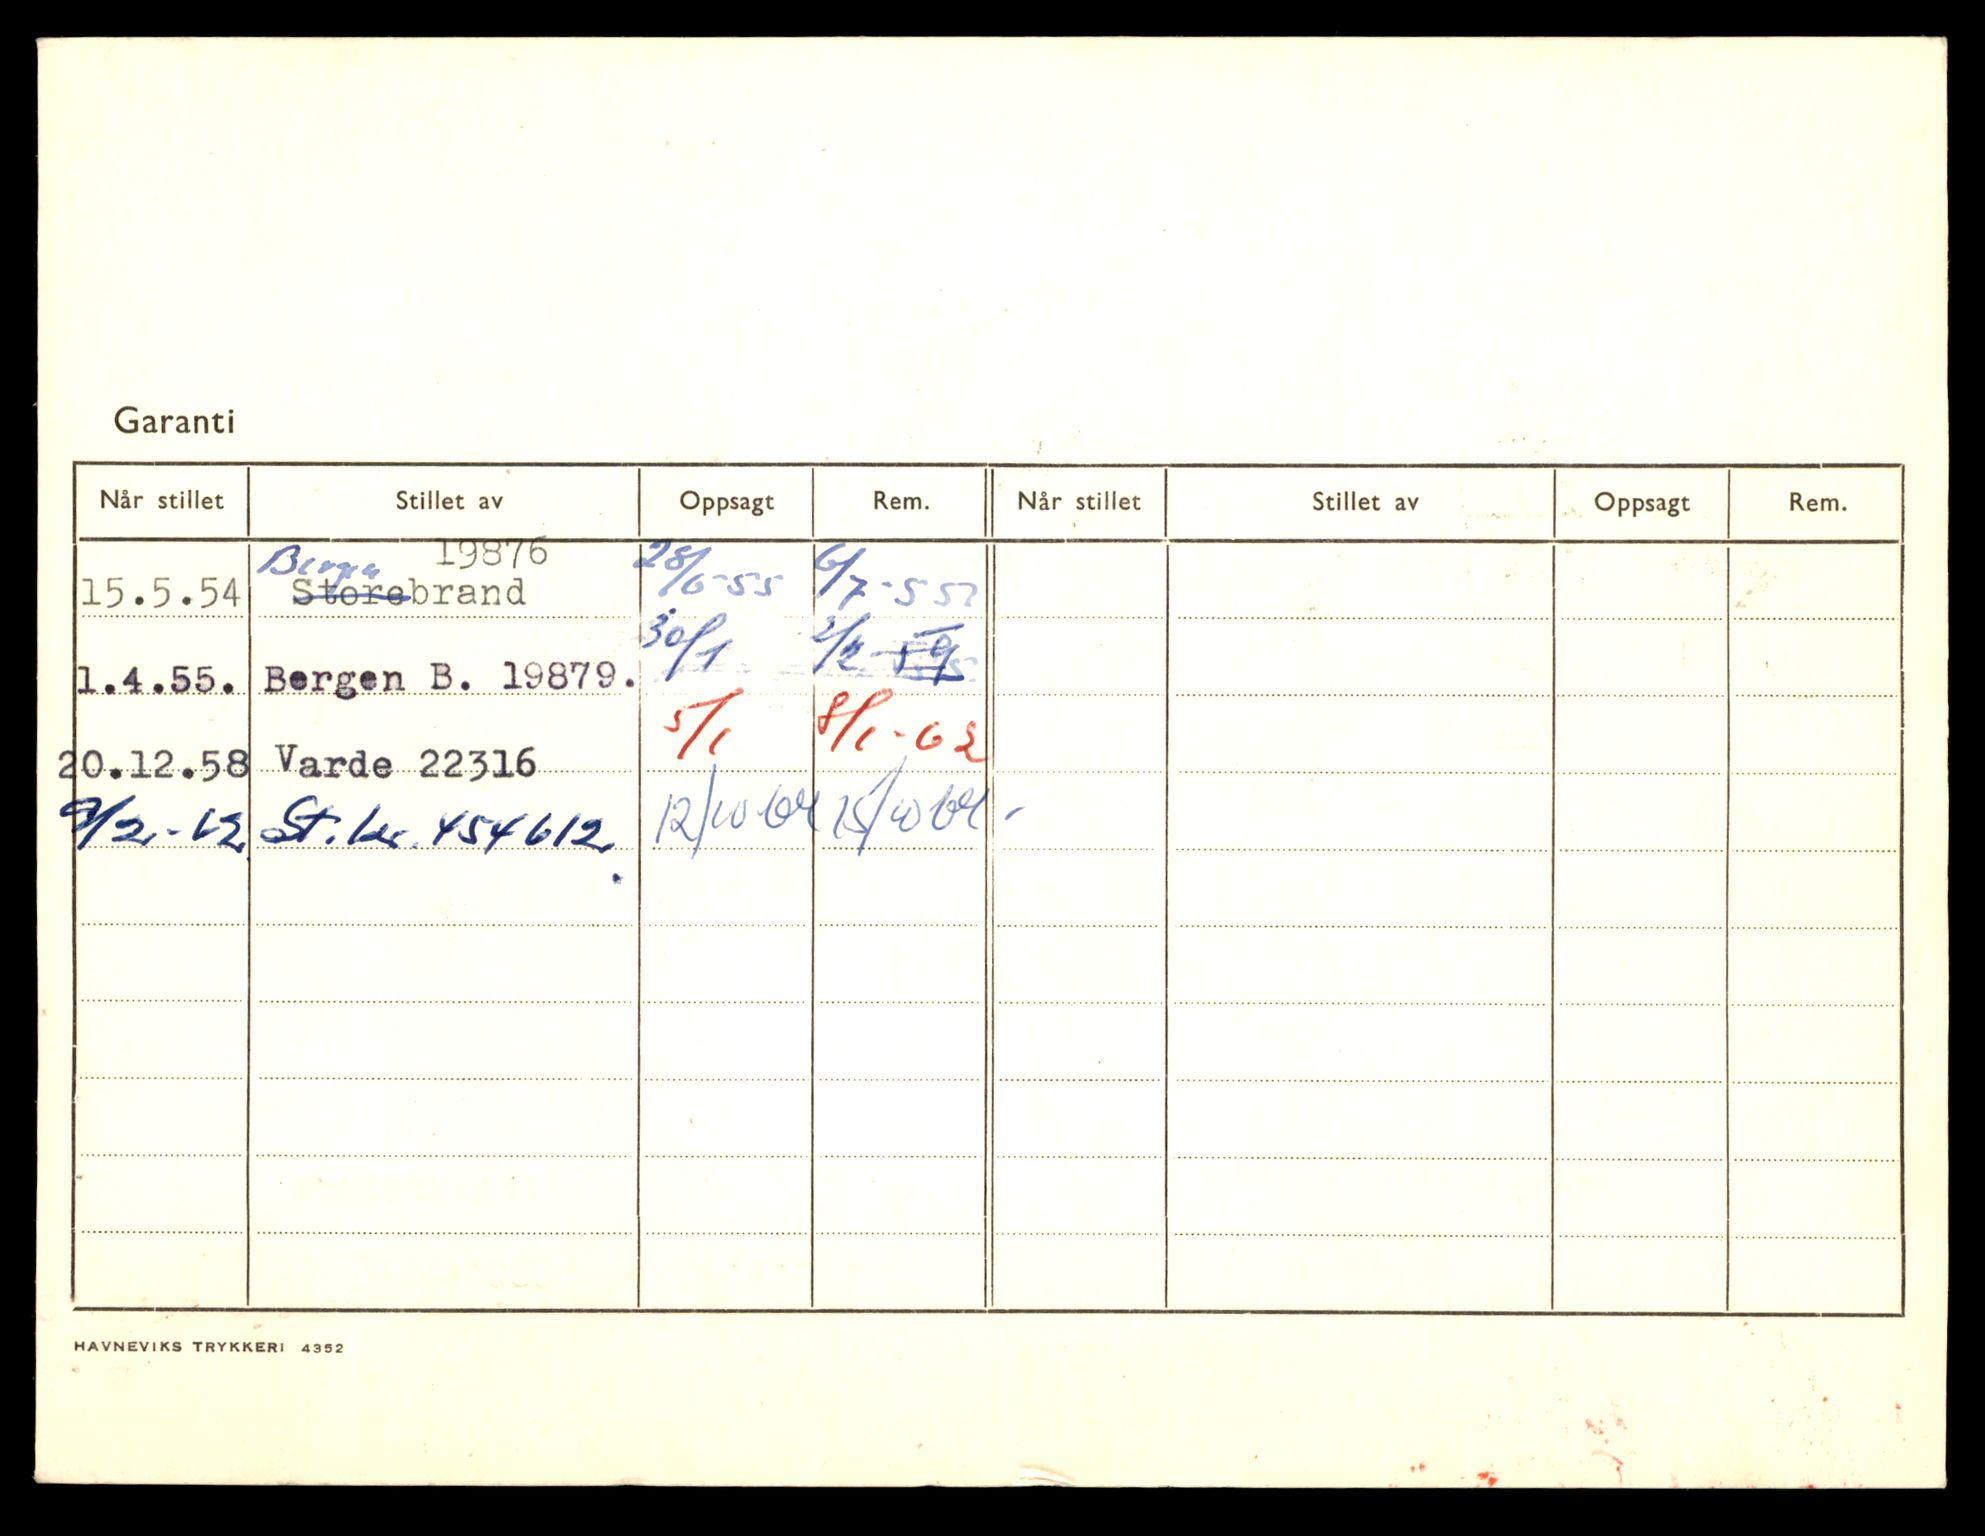 Garanti
Når stillet Stillet av Oppsagt Rem. Når stillet Stillet av Oppsagt Rem.
Bergen 19876 28/6-55 6/7-55
15.5.54 Storebrand
30/1 2/2-59
1.4.55. Bergen B. 19879.
5/1 8/1-62
20.12.58 Varde 22316
9/2-62 St.br. 454612 12/10-64 15/10 64-
HAVNEVIKS TRYKKERI 4352